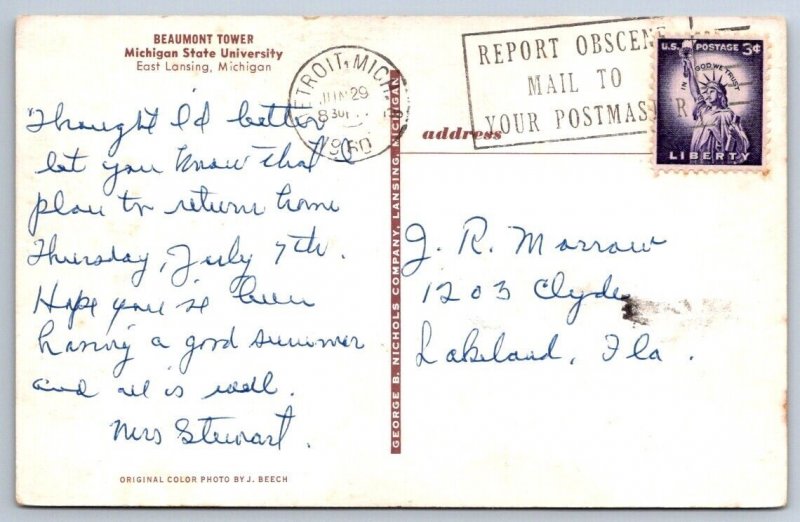 BEAUMONT TOWER
Michigan State University
East Lansing, Michigan
Thought I'd better
let you know that I
plan to return home
Thursday, July 7th.
Hope you've been
having a good summer
and all is well.
Mrs Stewart.
ORIGINAL COLOR PHOTO BY J. BEECH
GEORGE B. NICHOLS COMPANY, LANSING, MICHIGAN
DETROIT, MICH
JUN 29
1960
REPORT OBSCENE
MAIL TO
YOUR POSTMASTER
U.S. POSTAGE 3¢
IN GOD WE TRUST
LIBERTY
address
J. R. Morrow
1203 Clyde
Lakeland, Fla.